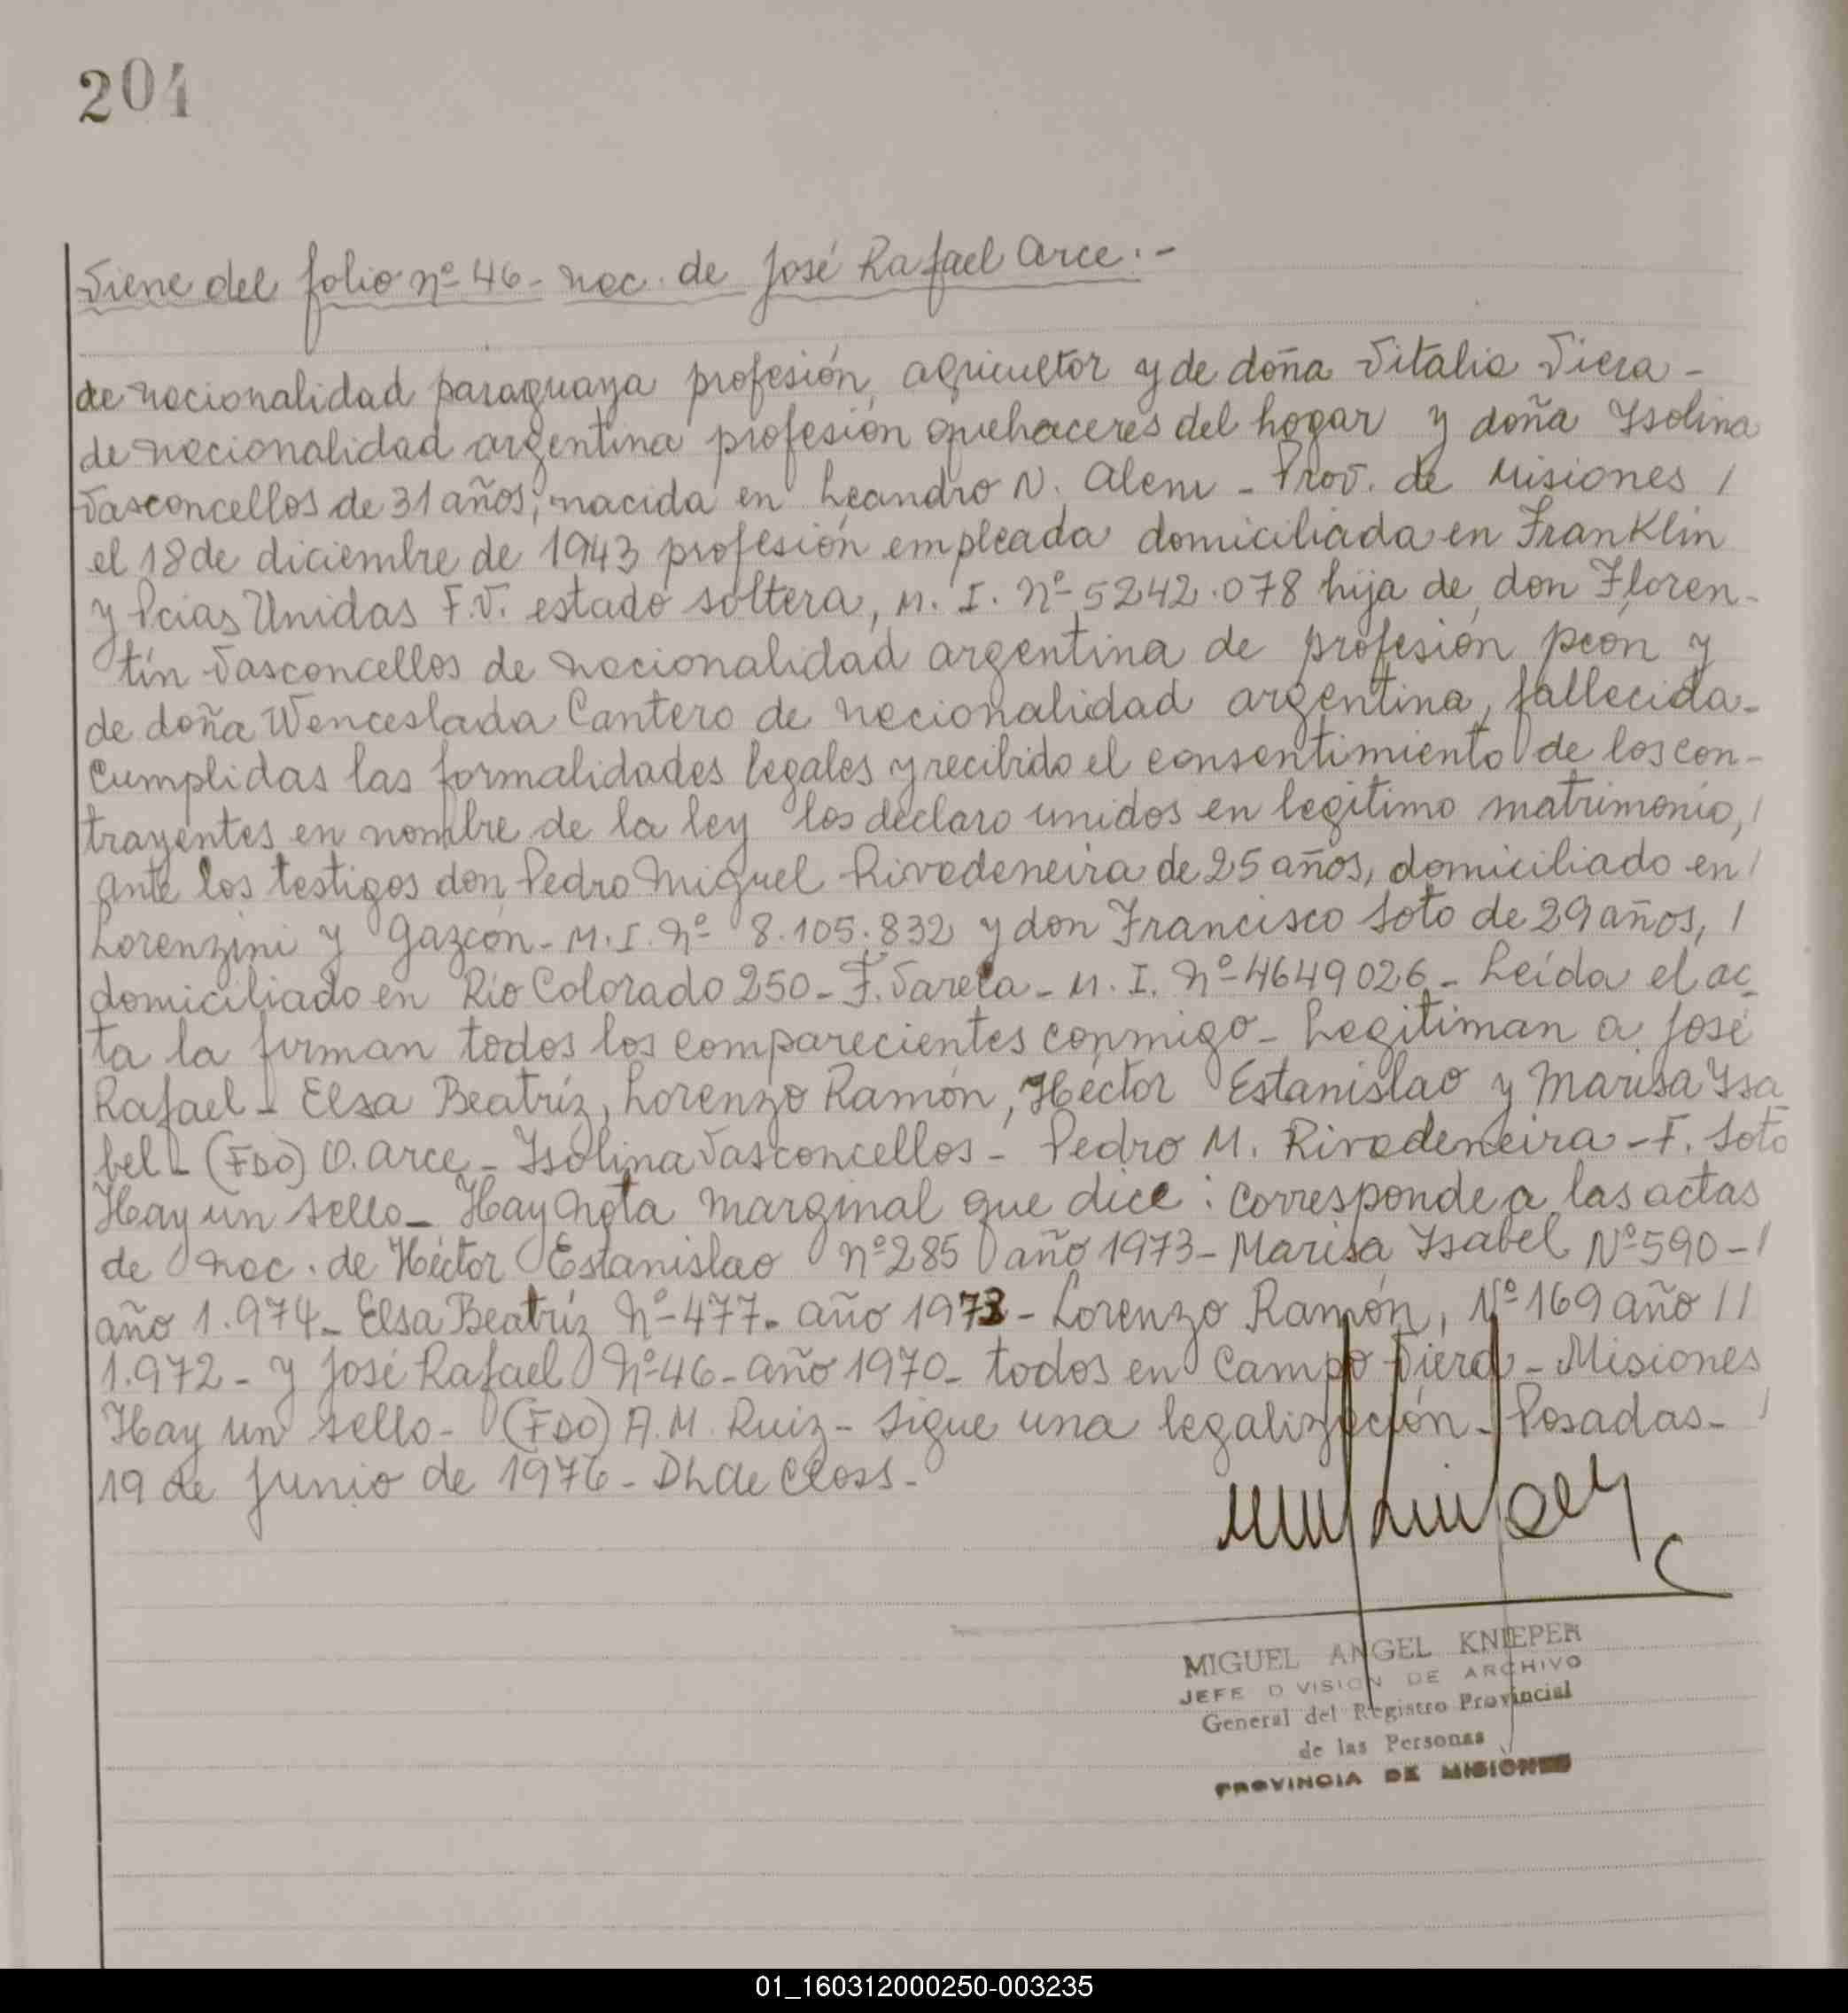 204
Viene del folio nº 46 - nac. de José Rafael Arce. -
de nacionalidad paraguaya profesión, agricultor y de doña Vitalia Viera -
de nacionalidad argentina profesión quehaceres del hogar y doña Isolina
Vasconcellos de 31 años, nacida en Leandro N. Alem - Prov. de Misiones /
el 18 de diciembre de 1943 profesión empleada domiciliada en Franklin
y Pcias Unidas F.V. estado soltera, M. I. Nº 5242.078 hija de don Floren-
tín Vasconcellos de nacionalidad argentina de profesión peón y
de doña Wenceslada Cantero de nacionalidad argentina, fallecida -
Cumplidas las formalidades legales y recibido el consentimiento de los con-
trayentes en nombre de la ley los declaro unidos en legítimo matrimonio, /
ante los testigos don Pedro Miguel Rivadeneira de 25 años, domiciliado en /
Lorenzini y Gazcón - M. I. Nº 8.105.832 y don Francisco Soto de 29 años, /
domiciliado en Río Colorado 250 - F. Varela - M. I. Nº 4649026 - Leída el ac_
ta la firman todos los comparecientes conmigo - Legitiman a José
Rafael - Elsa Beatríz, Lorenzo Ramón, Héctor Estanislao y Marisa Isa_
bel - (FDO) O. Arce - Isolina Vasconcellos - Pedro M. Rivadeneira - F. Soto
Hay un sello - Hay nota marginal que dice: Corresponde a las actas
de nac. de Héctor Estanislao nº 285 año 1973 - Marisa Isabel Nº 590 - /
año 1.974 - Elsa Beatríz Nº 477 - año 1973 - Lorenzo Ramón, Nº 169 año //
1.972 - y José Rafael Nº 46 - año 1970 - todos en Campo Viera - Misiones
Hay un sello - (FDO) A. M. Ruiz - Sigue una legalización - Posadas - /
19 de Junio de 1976 - DL de Closs -
MIGUEL ANGEL KNIEPER
JEFE D VISION DE ARCHIVO
General del Registro Provincial
de las Personas
PROVINCIA DE MISIONES
01_160312000250-003235